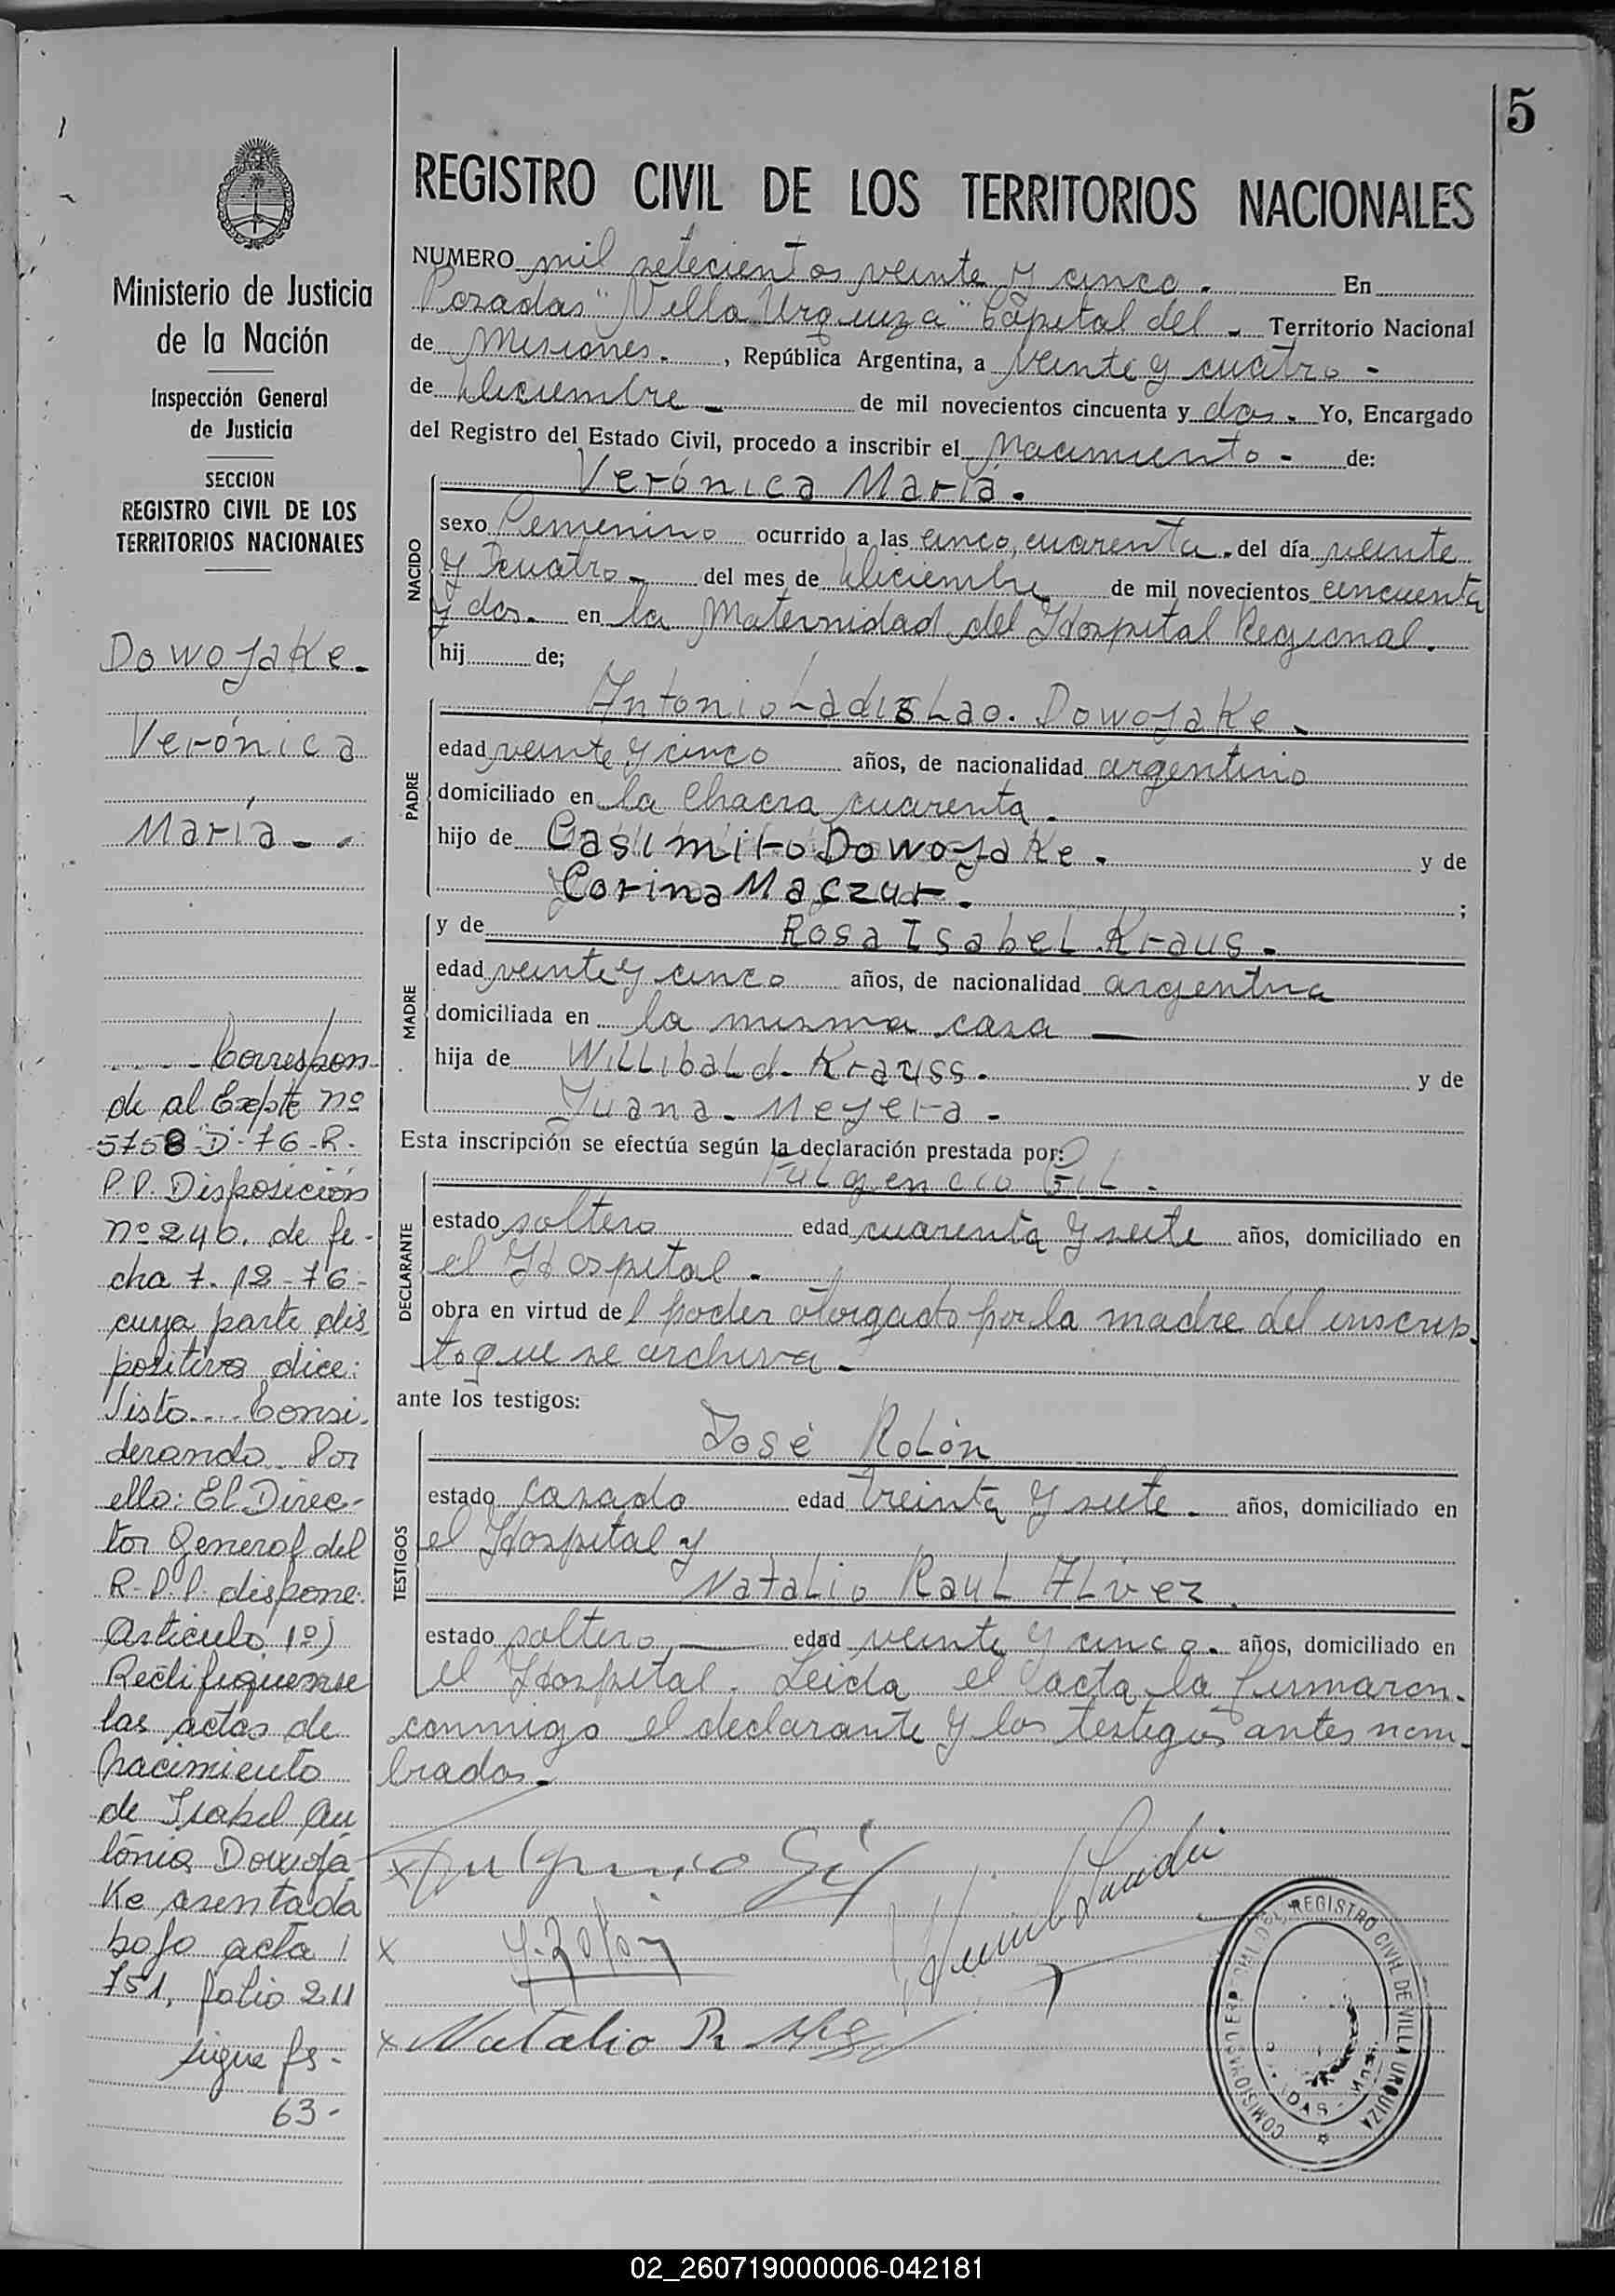 5
REGISTRO CIVIL DE LOS TERRITORIOS NACIONALES
Ministerio de Justicia
de la Nación
Inspección General
de Justicia
SECCION
REGISTRO CIVIL DE LOS
TERRITORIOS NACIONALES
Dowojake.
Verónica
María.
Correspon-
de al Expte nº
5758-D-76-R.
P.P. Disposición
nº 246. de fe-
cha 7.12-76-
cuya parte dis
positiva dice:
Visto.... Consi-
derando.. Por
ello: El Direc-
tor General del
R.P.P. dispone:
Articulo 1º)
Rectifiquense
las actas de
nacimiento
de Isabel An
tonia Dowoja
Ke asentada
bajo acta 1
751, folio 211
sigue fs-
63-
NUMERO mil setecientos veinte y cinco. En
Posadas "Villa Urquiza" Capital del Territorio Nacional
de Misiones. , República Argentina, a veinte y cuatro -
de diciembre - de mil novecientos cincuenta y dos. Yo, Encargado
del Registro del Estado Civil, procedo a inscribir el Nacimiento - de:
NACIDO
Verónica María.
sexo Femenino ocurrido a las cinco, cuarenta. del día veinte
y cuatro - del mes de diciembre de mil novecientos cincuenta
y dos. en la Maternidad del Hospital Regional.
hij de;
PADRE
Antonio Ladislao. Dowojake.
edad veinte y cinco años, de nacionalidad argentino
domiciliado en la Chacra cuarenta.
hijo de Casimiro Dowojake. y de
Corina Maczur. ;
MADRE
y de Rosa Isabel Kraus.
edad veinte y cinco años, de nacionalidad argentina
domiciliada en la misma casa —
hija de Willibald. Krauss. y de
Juana. Meyera.
Esta inscripción se efectúa según la declaración prestada por:
DECLARANTE
Fulgencio Gil.
estado soltero edad cuarenta y siete años, domiciliado en
el Hospital.
obra en virtud del poder otorgado por la madre del inscrip-
to que se archiva.
ante los testigos:
TESTIGOS
José Rolón
estado casado edad treinta y siete. años, domiciliado en
el Hospital y
Natalio Raul Alvez.
estado soltero, — edad veinte y cinco. años, domiciliado en
el Hospital. Leida el acta la firmaron
conmigo el declarante y los testigos antes nom-
brados.
x Fulgencio Gil
x J. Rolón
x Natalio R
DEL REGISTRO CIVIL DE VILLA URQUIZA
02_260719000006-042181